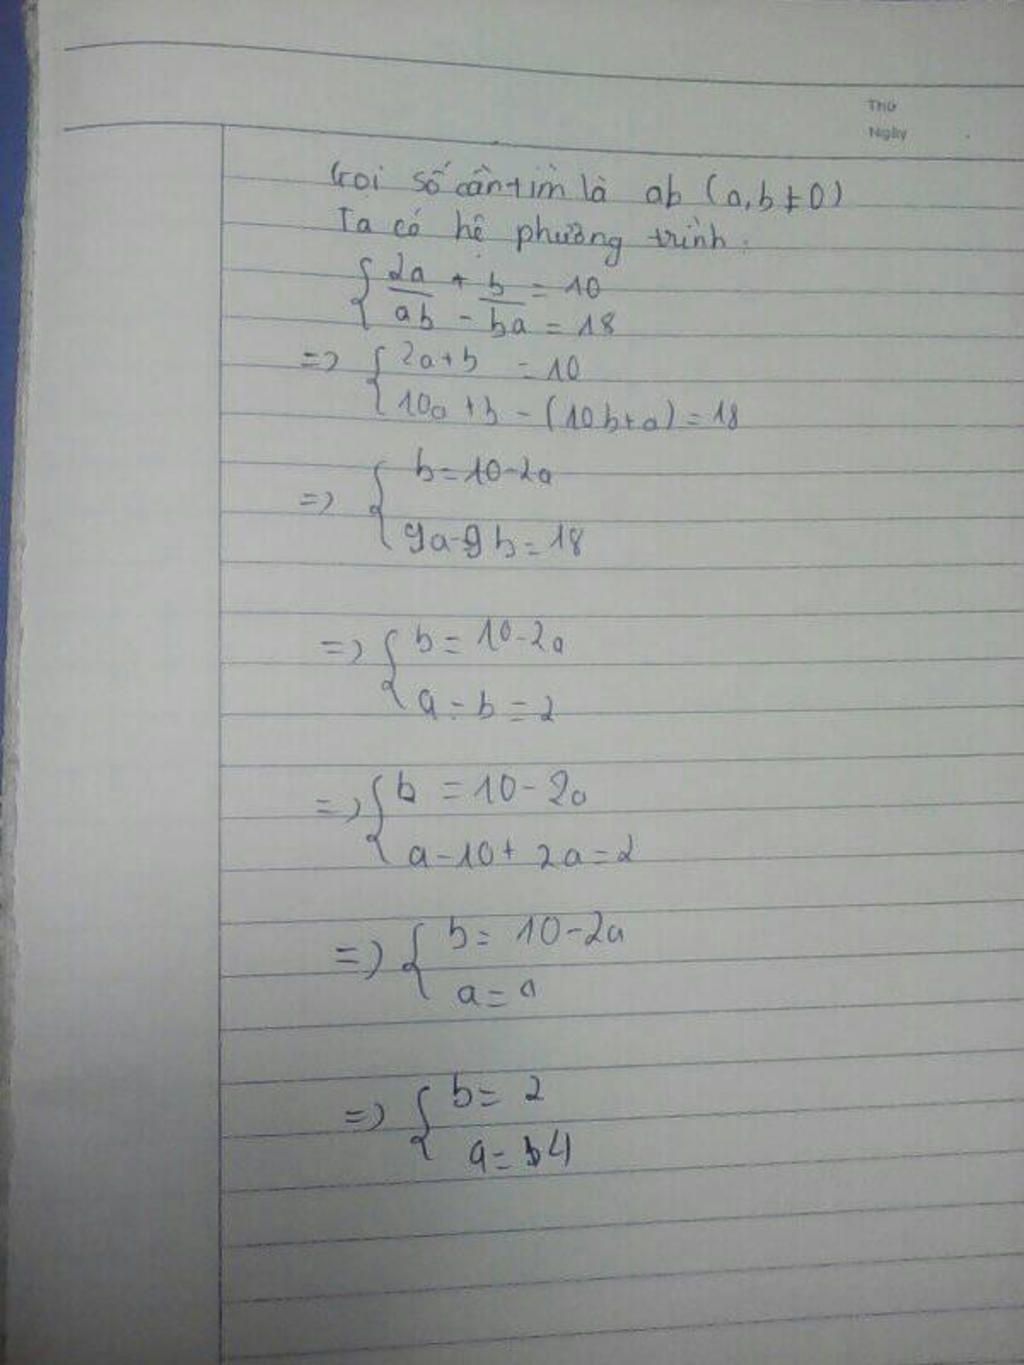 Thứ
Ngày
Gọi số cần tìm là ab (a,b≠0)
Ta có hệ phương trình:
{ 2a + b = 10
ab - ba = 18
=> { 2a+b = 10
10a +b - (10b+a) = 18
=> { b=10-2a
9a-9b=18
=> { b= 10-2a
a - b = 2
=> { b = 10 - 2a
a-10+ 2a=2
=> { b= 10-2a
a=
=> { b= 2
a= 4